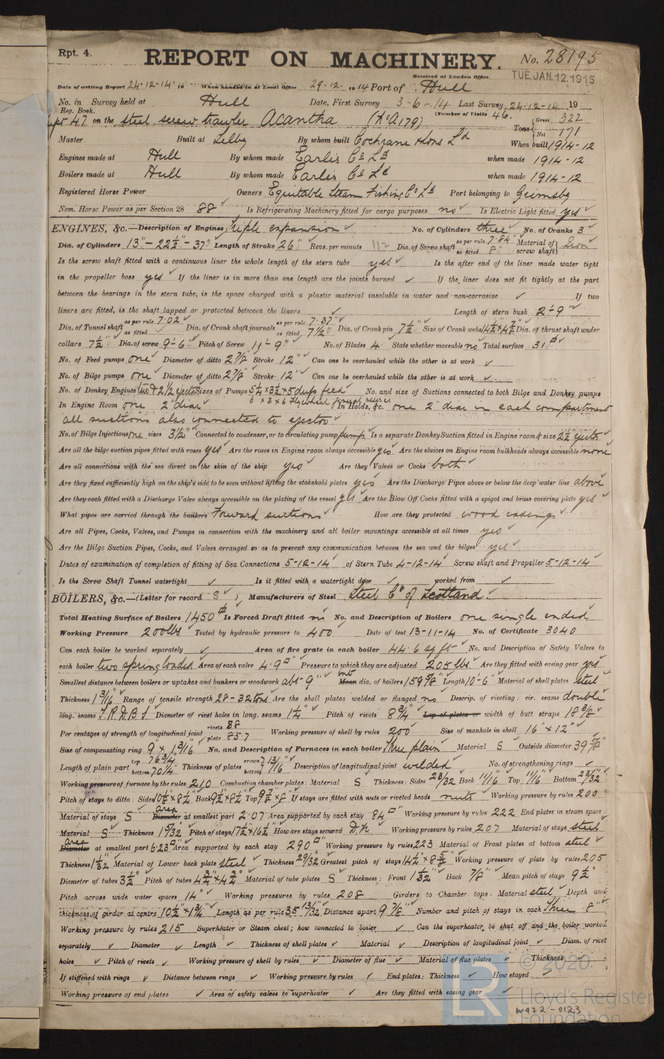 Rpt. 4.
REPORT ON MACHINERY. No. 28195
Received at London Office TUE. JAN. 12. 1915
Date of writing Report 24-12-14 19 When handed in at Local Office 29-12-1914 Port of Hull
No. in Survey held at Hull Date, First Survey 3-6-14 Last Survey 24-12-14 19
Reg. Book. (Number of Visits 46.
on the steel screw trawler Acantha (H A179) Tons Gross 322 Net 171
Master Built at Selby By whom built Cochrane & Sons Ld When built 1914-12
Engines made at Hull By whom made Earles Co Ld when made 1914-12
Boilers made at Hull By whom made Earles Co Ld when made 1914-12
Registered Horse Power Owners Equitable Steam Fishing Co Ld Port belonging to Grimsby
Nom. Horse Power as per Section 28 88 Is Refrigerating Machinery fitted for cargo purposes no Is Electric Light fitted yes
ENGINES, &c.—Description of Engines Triple expansion No. of Cylinders three No. of Cranks 3
Dia. of Cylinders 13"-22½"-37" Length of Stroke 26" Revs. per minute 112 Dia. of Screw shaft as per rule 7.84" as fitted 8" Material of screw shaft Iron
Is the screw shaft fitted with a continuous liner the whole length of the stern tube yes Is the after end of the liner made water tight
in the propeller boss yes If the liner is in more than one length are the joints burned ✓ If the liner does not fit tightly at the part
between the bearings in the stern tube, is the space charged with a plastic material insoluble in water and non-corrosive ✓ If two
liners are fitted, is the shaft lapped or protected between the liners Length of stern bush 2'-9"
Dia. of Tunnel shaft as per rule 7.02 as fitted Dia. of Crank shaft journals as per rule 7.37" as fitted 7½" Dia. of Crank pin 7½" Size of Crank webs Dia. of thrust shaft under
collars 7½" Dia. of screw 9'-6" Pitch of Screw 11'-9" No. of Blades 4 State whether moveable no Total surface 31
No. of Feed pumps one Diameter of ditto 2⅞" Stroke 12" Can one be overhauled while the other is at work ✓
No. of Bilge pumps one Diameter of ditto 2⅞" Stroke 12" Can one be overhauled while the other is at work ✓
No. of Donkey Engines Sizes of Pumps No. and size of Suctions connected to both Bilge and Donkey pumps
In Engine Room one 2" diar In Holds, &c. one 2" diar in each compartment
all suctions also connected to ejector
No. of Bilge Injections one sizes 3½" Connected to condenser, or to circulating pump pump Is a separate Donkey Suction fitted in Engine room & size 2½ ejector
Are all the bilge suction pipes fitted with roses yes Are the roses in Engine room always accessible yes Are the sluices on Engine room bulkheads always accessible none
Are all connections with the sea direct on the skin of the ship yes Are they Valves or Cocks both
Are they fixed sufficiently high on the ship's side to be seen without lifting the stokehold plates yes Are the Discharge Pipes above or below the deep water line above
Are they each fitted with a Discharge Valve always accessible on the plating of the vessel yes Are the Blow Off Cocks fitted with a spigot and brass covering plate yes
What pipes are carried through the bunkers Forward suctions How are they protected wood casings
Are all Pipes, Cocks, Valves, and Pumps in connection with the machinery and all boiler mountings accessible at all times yes
Are the Bilge Suction Pipes, Cocks, and Valves arranged so as to prevent any communication between the sea and the bilges yes
Dates of examination of completion of fitting of Sea Connections 5-12-14 of Stern Tube 4-12-14 Screw shaft and Propeller 5-12-14
Is the Screw Shaft Tunnel watertight ✓ Is it fitted with a watertight door ✓ worked from ✓
BOILERS, &c.—(Letter for record S) Manufacturers of Steel Steel Co of Scotland
Total Heating Surface of Boilers 1450 Is Forced Draft fitted no No. and Description of Boilers one single ended
Working Pressure 200 lbs Tested by hydraulic pressure to 400 Date of test 13-11-14 No. of Certificate 3040
Can each boiler be worked separately ✓ Area of fire grate in each boiler 44.6 sq ft No. and Description of Safety Valves to
each boiler two spring loaded Area of each valve 4.9 Pressure to which they are adjusted 205 lbs Are they fitted with easing gear yes
Smallest distance between boilers or uptakes and bunkers or woodwork abt 9" Mean dia. of boilers Length 10'-6 Material of shell plates steel
Thickness 1 3/16 Range of tensile strength 28-32 tons Are the shell plates welded or flanged no Descrip. of riveting: cir. seams double
long. seams T.R.D.B.S Diameter of rivet holes in long. seams 1¼" Pitch of rivets 8¾" Lap of plates or width of butt straps 18⅜"
Per centages of strength of longitudinal joint rivets 88 plate 85.7 Working pressure of shell by rules 200 Size of manhole in shell 16" x 12"
Size of compensating ring 9 x 1 3/16 No. and Description of Furnaces in each boiler three plain Material S Outside diameter 39
Length of plain part top 76¾ bottom 70¼ Thickness of plates crown bottom 13/16 Description of longitudinal joint welded No. of strengthening rings ✓
Working pressure of furnace by the rules 210 Combustion chamber plates: Material S Thickness: Sides 23/32 Back 11/16 Top 11/16 Bottom 23/32
Pitch of stays to ditto: Sides Back Top If stays are fitted with nuts or riveted heads nuts Working pressure by rules 200
Material of stays S area Diameter at smallest part 2.07 Area supported by each stay 84 Working pressure by rules 222 End plates in steam space:
Material S Thickness 1 9/32 Pitch of stays How are stays secured D.N Working pressure by rules 207 Material of stays steel
area Diameter at smallest part 6.23 Area supported by each stay 290 Working pressure by rules 223 Material of Front plates at bottom steel
Thickness 1 1/32 Material of Lower back plate steel Thickness 29/32 Greatest pitch of stays Working pressure of plate by rules 205
Diameter of tubes 3½" Pitch of tubes Material of tube plates S Thickness: Front 1 1/32 Back ⅞" Mean pitch of stays 9½
Pitch across wide water spaces 14" Working pressures by rules 208 Girders to Chamber tops: Material steel Depth and
thickness of girder at centre 10½ x 1¾ Length as per rule Distance apart 9⅞" Number and pitch of stays in each three 8"
Working pressure by rules 215 Superheater or Steam chest; how connected to boiler ✓ Can the superheater be shut off and the boiler worked
separately ✓ Diameter ✓ Length ✓ Thickness of shell plates ✓ Material ✓ Description of longitudinal joint ✓ Diam. of rivet
holes ✓ Pitch of rivets ✓ Working pressure of shell by rules ✓ Diameter of flue ✓ Material of flue plates ✓ Thickness ✓
If stiffened with rings ✓ Distance between rings ✓ Working pressure by rules ✓ End plates: Thickness ✓ How stayed
Working pressure of end plates ✓ Area of safety valves to superheater ✓ Are they fitted with easing gear ✓
© 2020
LR
Lloyd's Register
Foundation
W972-0123